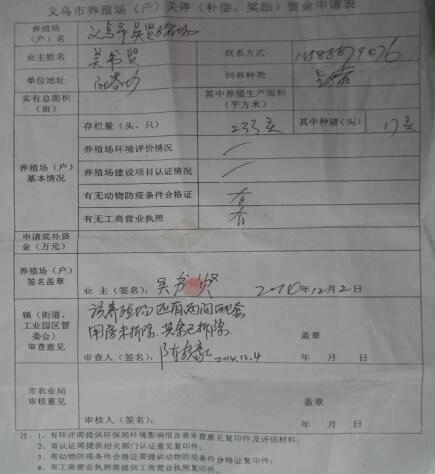 义乌市养殖场（户）关停（补偿、奖励）资金申请表
养殖场（户）名 义乌市吴贤猪场
业主姓名 吴书贤 联系方式
单位地址 饲养种类
实有总面积（亩） 其中养殖生产面积（平方米）
养殖场（户）基本情况
存栏量（头、只） 233头 其中种猪（头） 17头
养殖场环境评价情况 /
养殖场建设项目认证情况 /
有无动物防疫条件合格证 有
有无工商营业执照 有
申请奖补资金（万元）
养殖场（户）签名盖章
业 主（签名）： 吴书贤 2010年12月2日
镇（街道、工业园区管委会）审查意见
该养殖场还有两间配套
用房未拆除，其余已拆除。
盖章
审查人（签名）： 2014.12.4 年 月 日
市农业局审核意见
盖章
审核人（签名）： 年 月 日
注：1、有环评需提供环保局环境影响报告表审查意见复印件及评估材料；
2、有认证需提供相关部门认证意见复印件；
3、有动物防疫条件合格证需提供动物防疫条件合格证复印件；
4、有工商营业执照需提供工商营业执照复印件。